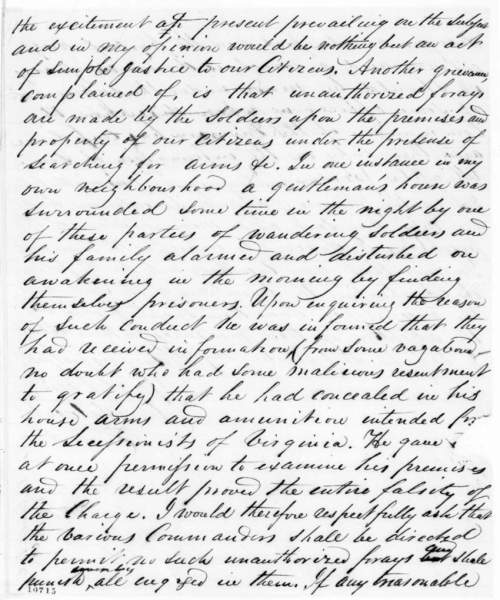 the excitement at present prevailing on the subject
and in my opinion would be nothing but an act
of simple justice to our Citizens. Another grievance
complained of, is that unauthorized forays
are made by the Soldiers upon the premises and
property of our Citizens under the pretense of
searching for arms &c. In one instance in my
own neighbourhood a gentleman's house was
surrounded some time in the night by one
of these parties of wandering soldiers and
his family alarmed and disturbed on
awakening in the morning by finding
themselves prisoners. Upon enquiring the reason
of such conduct he was informed that they
had received information (from some vagabond
no doubt who had some malicious resentment
to gratify) that he had concealed in his
house arms and amunition intended for
the Secessionists of Virginia. He gave
at once permission to examine his premises
and the result proved the entire falsity of
the Charge. I would therefore respectfully ask that
the various Commanders shall be directed
to permit no such unauthorized forays and shall
punish all engaged in them. If any reasonable
10715